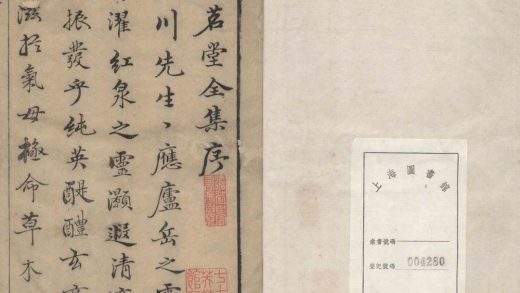 茗堂全集序
川先生、應廬岳之
濯紅泉之靈瀨遐清
振發乎純英醍醴玄
滋於氣母極命草木
上海圖書館
索書號碼
登記號碼 904280